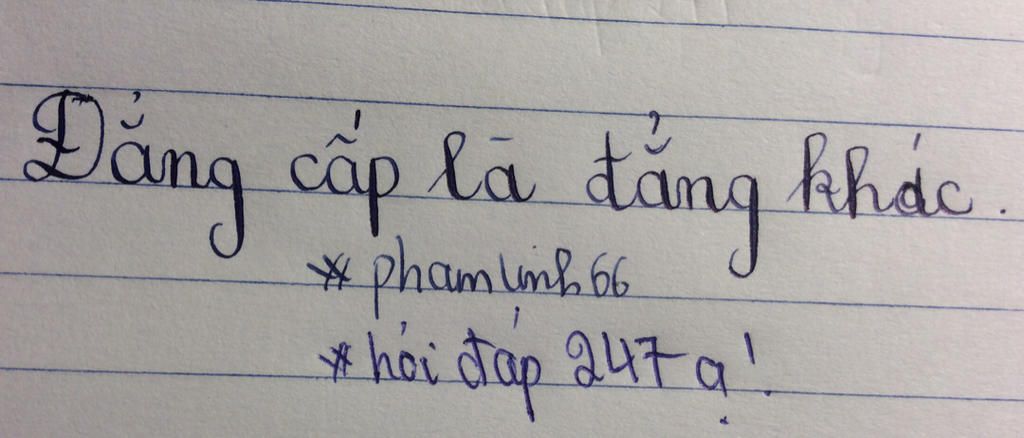 Đẳng cấp là đẳng khác.
* phamlinh66
* hỏi đáp 247 ạ!